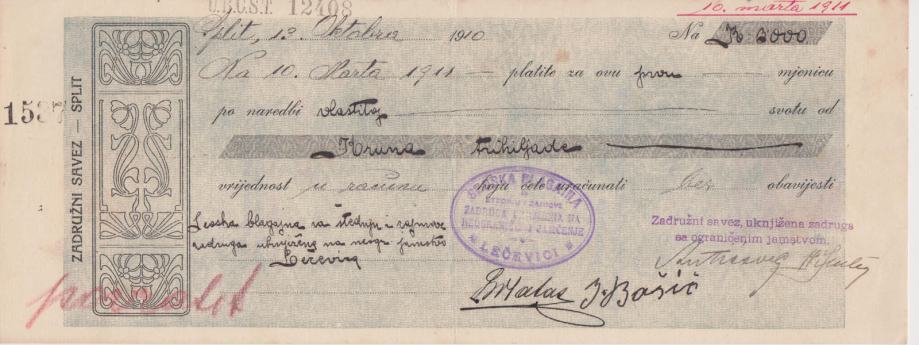 U.B.C.S.T. 12408
10. marta 1911
Split, 12. Oktobra 1910 Na K 3000
Na 10. Marta 1911 — platite za ovu prvu — mjenicu
1537
ZADRUŽNI SAVEZ — SPLIT
po naredbi vlastitoj svotu od
Kruna trihiljade
vrijednost u računu koju ćete uračunati bez obavijesti
Seoska blagajna za štednju i zajmove
zadruga uknjižena na neogr. jamstvo
Lečevica
SEOSKA BLAGAJNA
ŠTEDNJU I ZAJMOVE
ZADRUGA UKNJIŽENA NA
NEOGRANIČENO JAMČENJE
LEČEVICI
Zadružni savez, uknjižena zadruga
sa ograničenim jamstvom.
J. Bašić